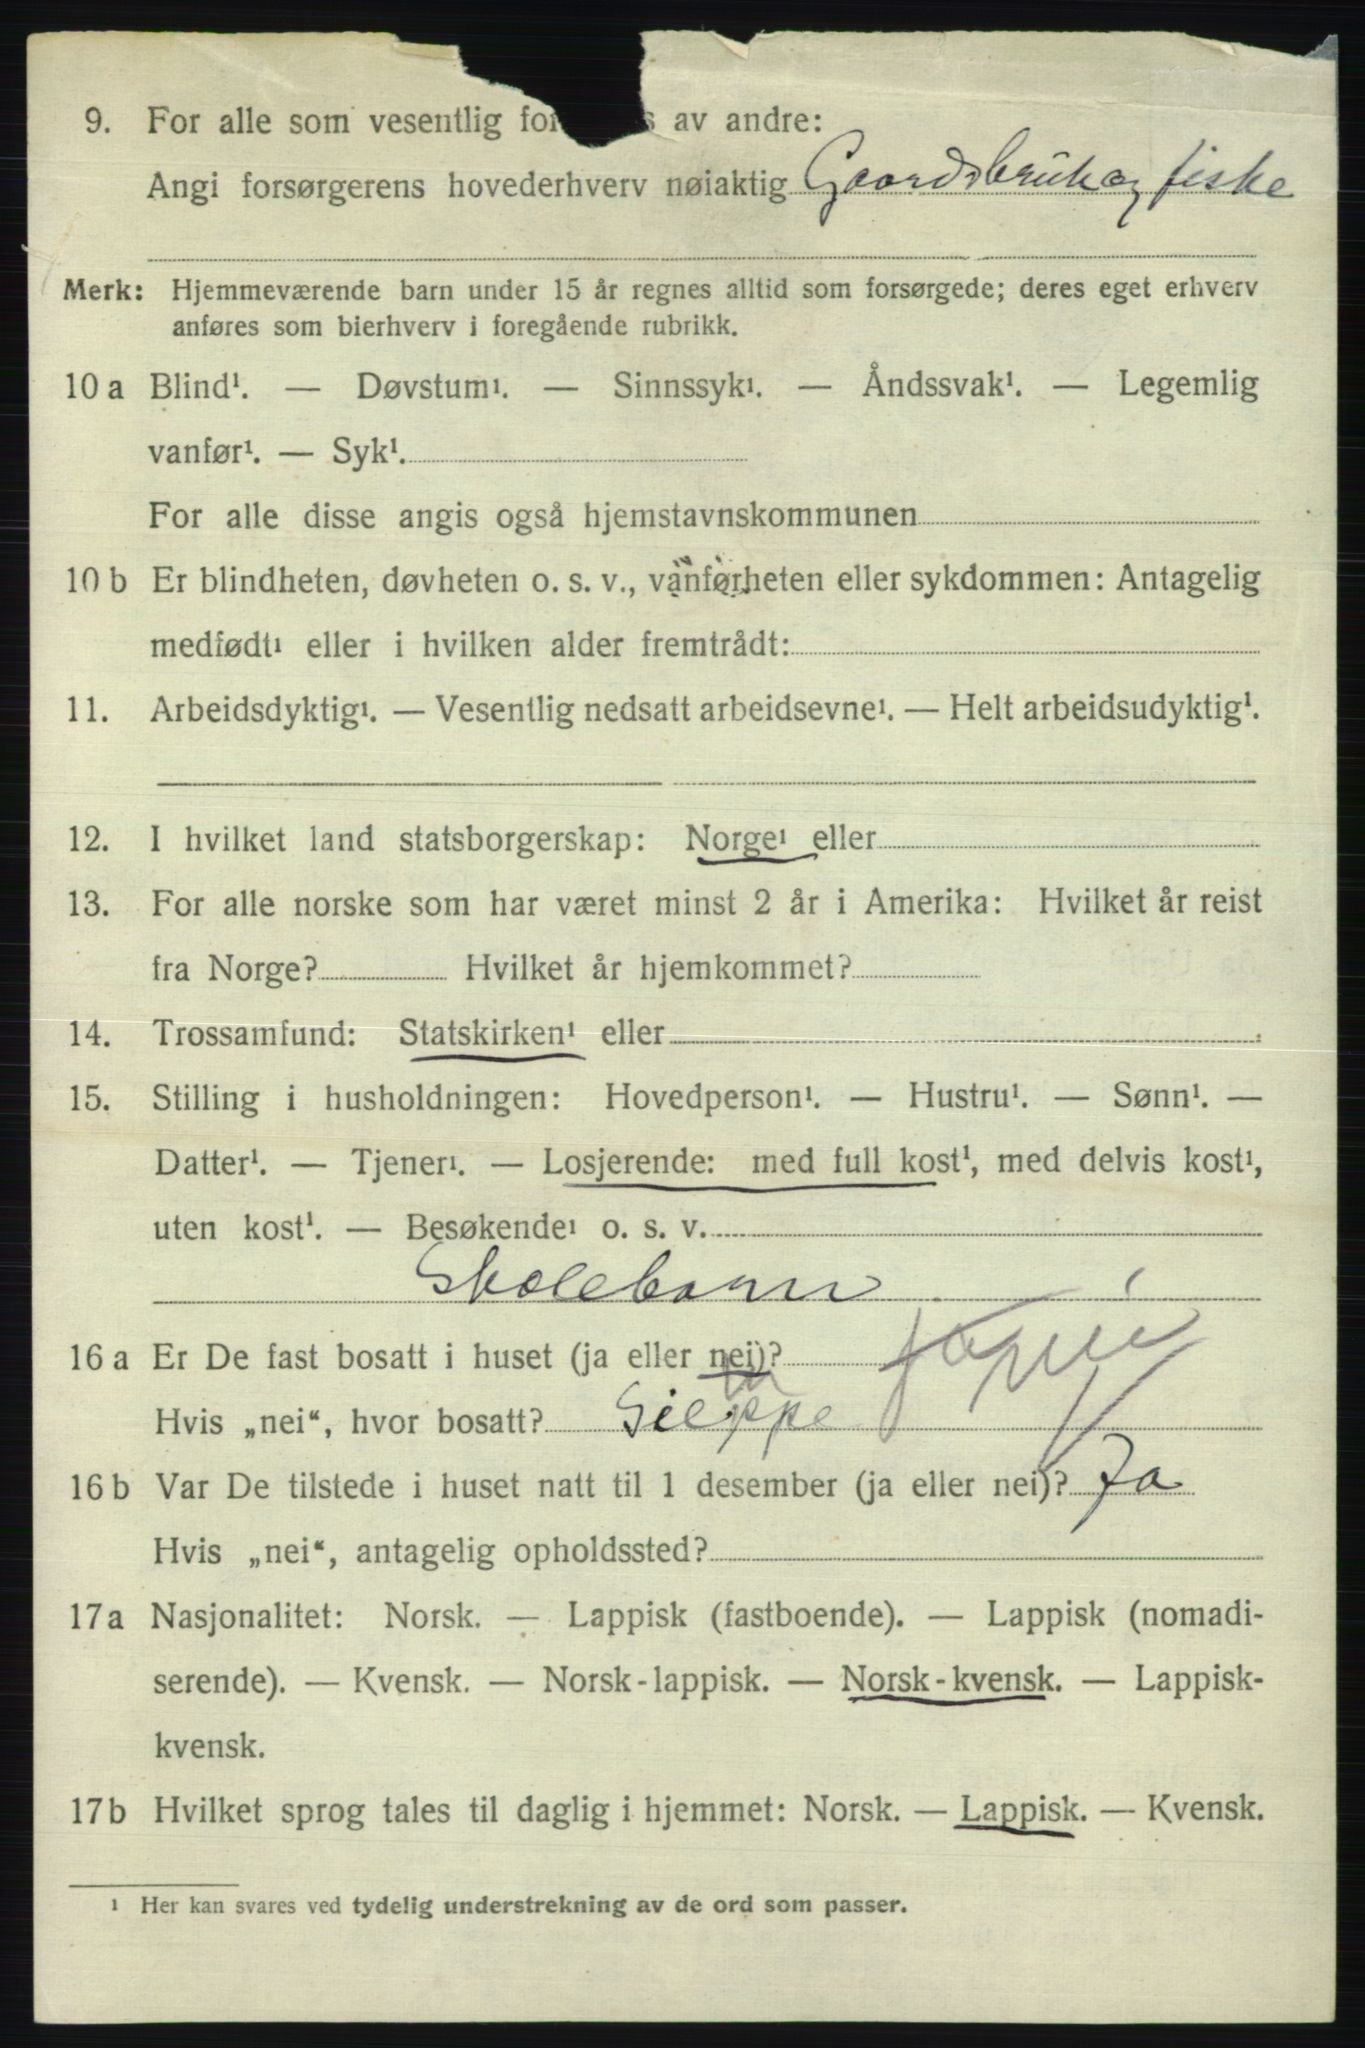 9. For alle som vesentlig for s av andre:
Angi forsørgerens hovederhverv nøiaktig Gaardsbruk og fiske
Merk: Hjemmeværende barn under 15 år regnes alltid som forsørgede; deres eget erhverv
anføres som bierhverv i foregående rubrikk.
10 a Blind¹. — Døvstum¹. — Sinnssyk¹. — Åndssvak¹. — Legemlig
vanfør¹. — Syk¹.
For alle disse angis også hjemstavnskommunen
10 b Er blindheten, døvheten o. s. v., vanførheten eller sykdommen: Antagelig
medfødt¹ eller i hvilken alder fremtrådt:
11. Arbeidsdyktig¹. — Vesentlig nedsatt arbeidsevne¹. — Helt arbeidsudyktig¹.
12. I hvilket land statsborgerskap: Norge¹ eller
13. For alle norske som har været minst 2 år i Amerika: Hvilket år reist
fra Norge? Hvilket år hjemkommet?
14. Trossamfund: Statskirken¹ eller
15. Stilling i husholdningen: Hovedperson¹. — Hustru¹. — Sønn¹. —
Datter¹. — Tjener¹. — Losjerende: med full kost¹, med delvis kost¹,
uten kost¹. — Besøkende¹ o. s. v.
Skolebarn
16 a Er De fast bosatt i huset (ja eller nei)?
Hvis „nei“, hvor bosatt?
16 b Var De tilstede i huset natt til 1 desember (ja eller nei)? Ja
Hvis „nei“, antagelig opholdssted?
17 a Nasjonalitet: Norsk. — Lappisk (fastboende). — Lappisk (nomadi-
serende). — Kvensk. — Norsk-lappisk. — Norsk-kvensk. — Lappisk-
kvensk.
17 b Hvilket sprog tales til daglig i hjemmet: Norsk. — Lappisk. — Kvensk.
¹ Her kan svares ved tydelig understrekning av de ord som passer.